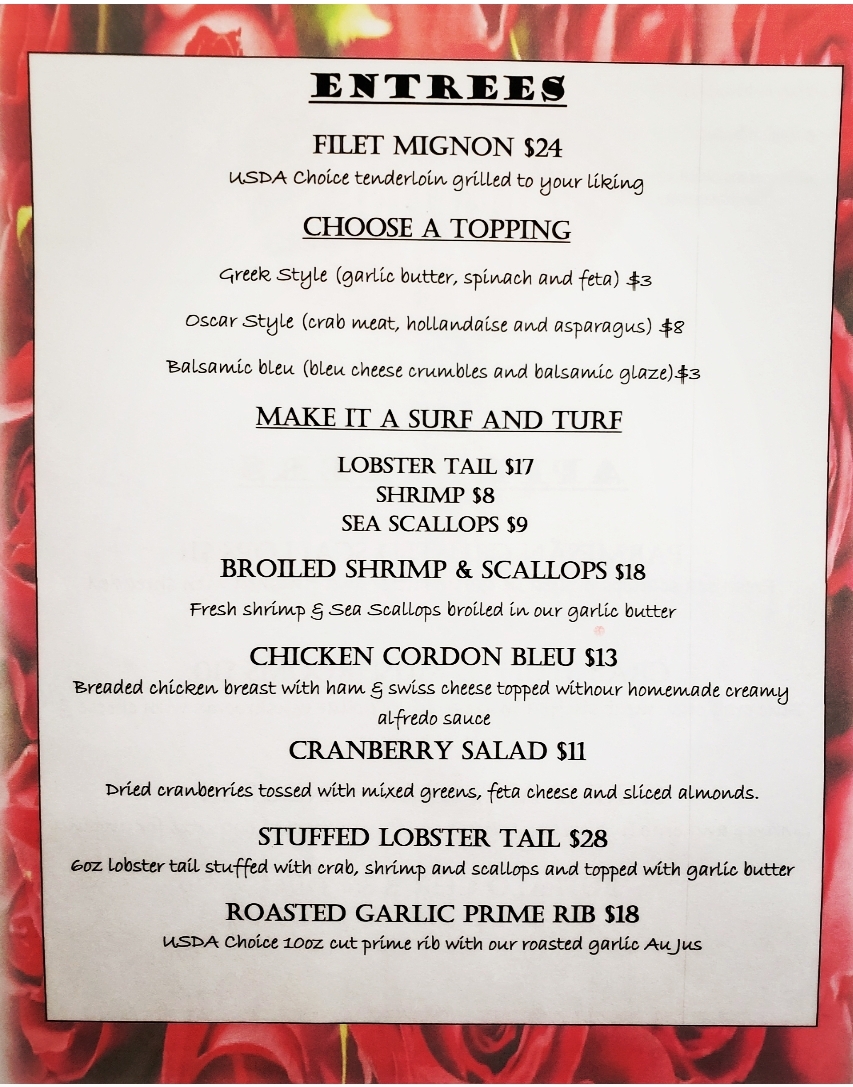 ENTREES
FILET MIGNON $24
USDA Choice tenderloin grilled to your liking
CHOOSE A TOPPING
Greek Style (garlic butter, spinach and feta) $3
Oscar Style (crab meat, hollandaise and asparagus) $8
Balsamic bleu (bleu cheese crumbles and balsamic glaze)$3
MAKE IT A SURF AND TURF
LOBSTER TAIL $17
SHRIMP $8
SEA SCALLOPS $9
BROILED SHRIMP & SCALLOPS $18
Fresh shrimp & Sea Scallops broiled in our garlic butter
CHICKEN CORDON BLEU $13
Breaded chicken breast with ham & swiss cheese topped withour homemade creamy
alfredo sauce
CRANBERRY SALAD $11
Dried cranberries tossed with mixed greens, feta cheese and sliced almonds.
STUFFED LOBSTER TAIL $28
6oz lobster tail stuffed with crab, shrimp and scallops and topped with garlic butter
ROASTED GARLIC PRIME RIB $18
USDA Choice 10oz cut prime rib with our roasted garlic Au Jus